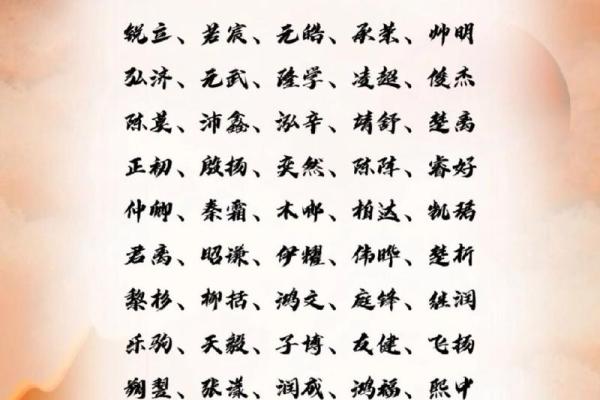 锐立、若宸、元皓、承荣、帅明
弘济、元武、隆学、凌超、俊杰
陈莫、沛鑫、泓辛、靖舒、楚离
正初、殷扬、奕然、陈阵、睿好
仲卿、秦霜、木郎、柏达、凯
君离、昭谦、伊耀、伟晔、楚析
黎杉、柳括、鸿文、庭锋、继润
乐驹、天毅、子博、友健、飞扬
张漾、润成、鸿福、熙中